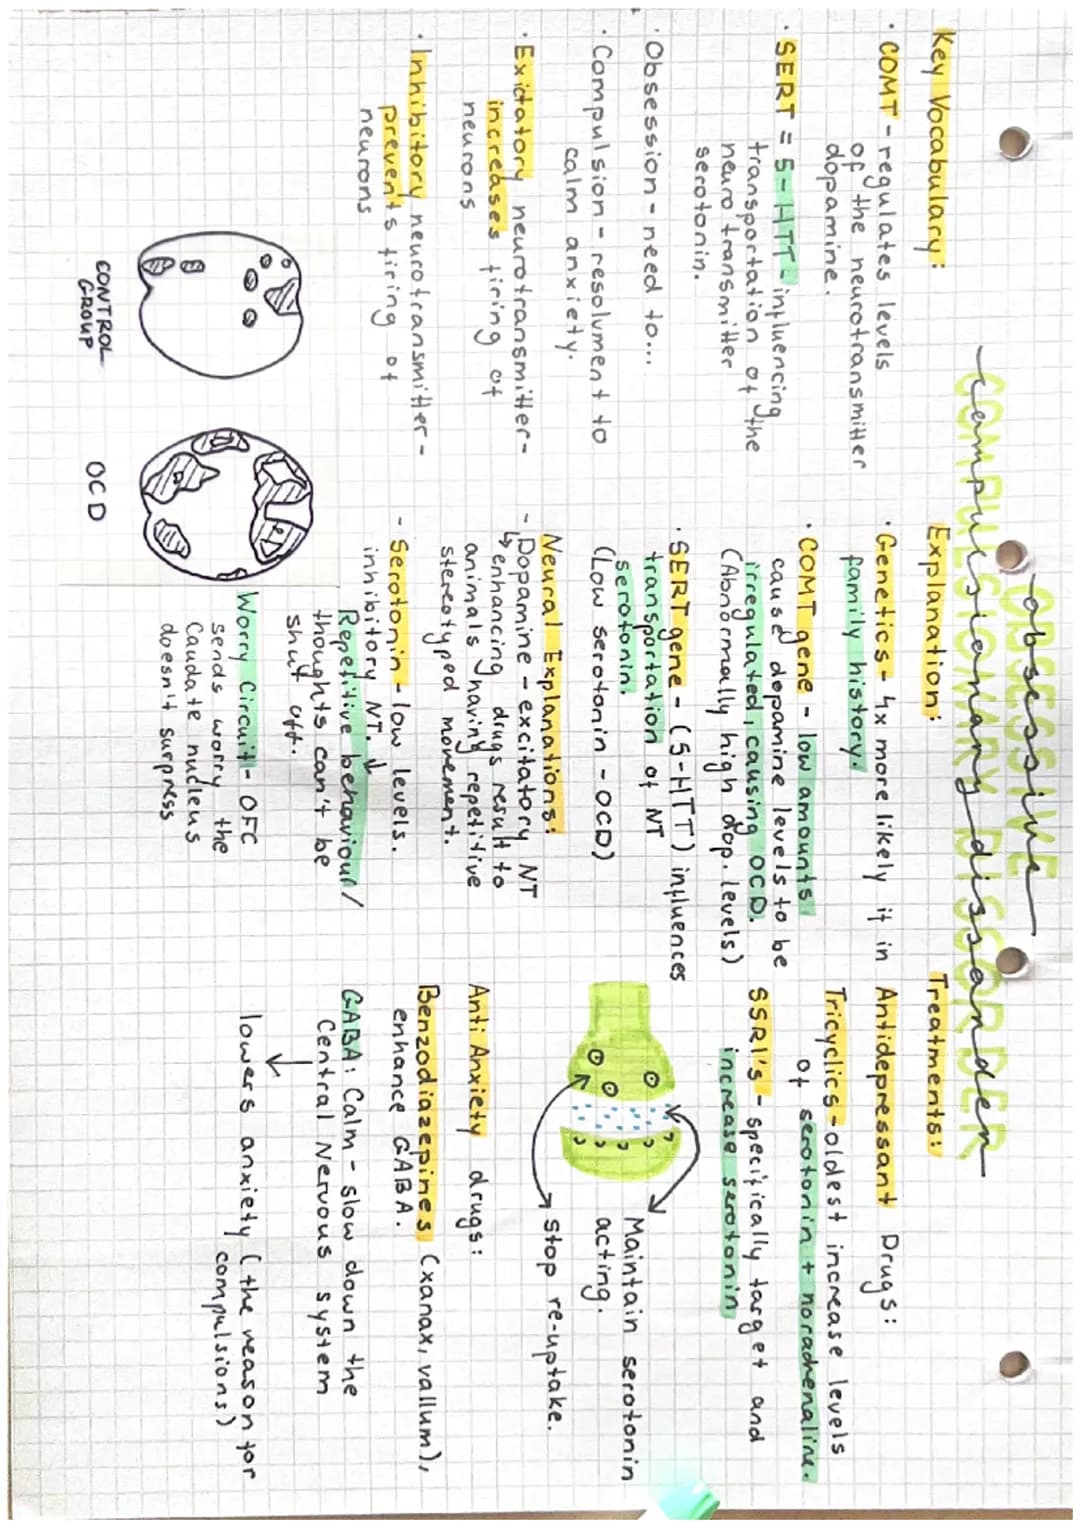 obsessive
OBSESSIVE
compulsionary dissorder
COMPULSIONARY DISSORDER
Key Vocabulary:
· COMT - regulates levels
of the neurotransmitter
dopamine.
· SERT = 5-HTT - influencing
transportation of the
neurotransmitter
serotonin.
· Obsession - need to...
· Compulsion - resolvment to
calm anxiety.
· Exictatory neurotransmitter -
increases firing of
neurons
· Inhibitory neurotransmitter -
prevents firing of
neurons
CONTROL
GROUP
OCD
Explanation:
· Genetics - 4x more likely if in
family history.
· COMT gene - low amounts
cause dopamine levels to be
irregulated, causing OCD.
(Abnormally high dop. levels)
· SERT gene - (5-HTT) influences
transportation of NT
serotonin.
(Low serotonin - OCD)
Neural Explanations:
- Dopamine - excitatory NT
↳ enhancing drugs result to
animals having repetitive
stereotyped movement.
- Serotonin - low levels.
inhibitory NT. ↓
Repetitive behaviour/
thoughts can't be
shut off.
Worry Circuit - OFC
sends worry the
Caudate nucleus
doesn't surpress
Treatments:
Antidepressant Drugs:
Tricyclics - oldest increase levels
of serotonin + noradrenaline.
SSRI's - specifically target and
increase serotonin
Maintain serotonin
acting.
Stop re-uptake.
Anti Anxiety drugs:
Benzodiazepines (xanax, vallum),
enhance GABA.
GABA: Calm - slow down the
Central Nervous system
↓
lowers anxiety (the reason for
compulsions)